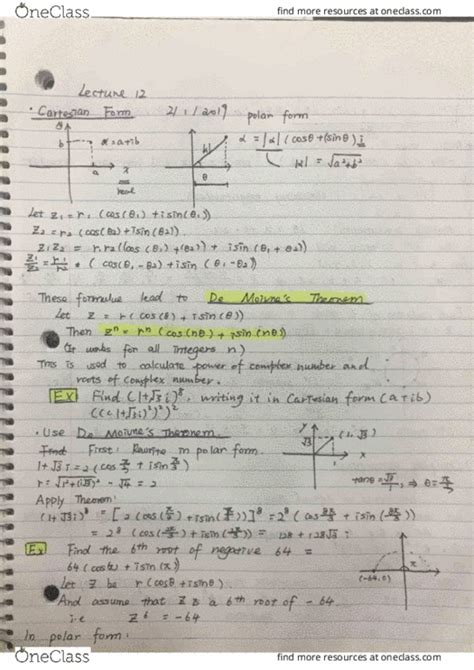 OneClass
find more resources at oneclass.com
Lecture 12
· Cartesian Form
21/1/2019
polar form
b
α = a+ib
a
x
real
|α|
θ
α = |α| (cosθ + (sinθ) i
|α| = √a²+b²
Let Z₁ = r₁ (cos(θ₁) + i sin(θ₁))
Z₂ = r₂ (cos(θ₂) + i sin(θ₂))
Z₁Z₂ = r₁r₂ (cos(θ₁)+(θ₂)) + i sin(θ₁+θ₂))
Z₁/Z₂ = r₁/r₂ · (cos(θ₁-θ₂) + i sin(θ₁-θ₂))
These formulae lead to De Moivre's Theorem
Let Z = r(cos(θ) + i sin(θ))
Then Zⁿ = rⁿ (cos(nθ) + i sin(nθ))
(It works for all integers n)
This is used to calculate power of complex number and
roots of complex number.
Ex Find (1+√3 i)⁸, writing it in Cartesian form (a+ib)
(((1+√3i)²)²)²
· Use De Moivre's Theorem.
Find First: Rewrite in polar form.
1+√3 i = 2 (cos π/3 + i sin π/3)
r = √1²+(√3)² = √4 = 2
y
√3
(1, √3)
1
x
tanθ = √3/1, ⇒ θ = π/3
Apply Theorem:
(1+√3i)⁸ = [2 (cos(π/3) + i sin(π/3))]⁸ = 2⁸ (cos 8π/3 + i sin(8π/3))
= 2⁸ (cos(2π/3) + i sin(2π/3)) = -128 + 128√3 i
Ex Find the 6th root of negative 64 =
64 (cos(π) + i sin(π))
Let Z be r(cosθ + i sinθ)
And assume that Z is a 6th root of -64
i.e Z⁶ = -64
(-64,0)
π
In polar form:
OneClass
find more resources at oneclass.com